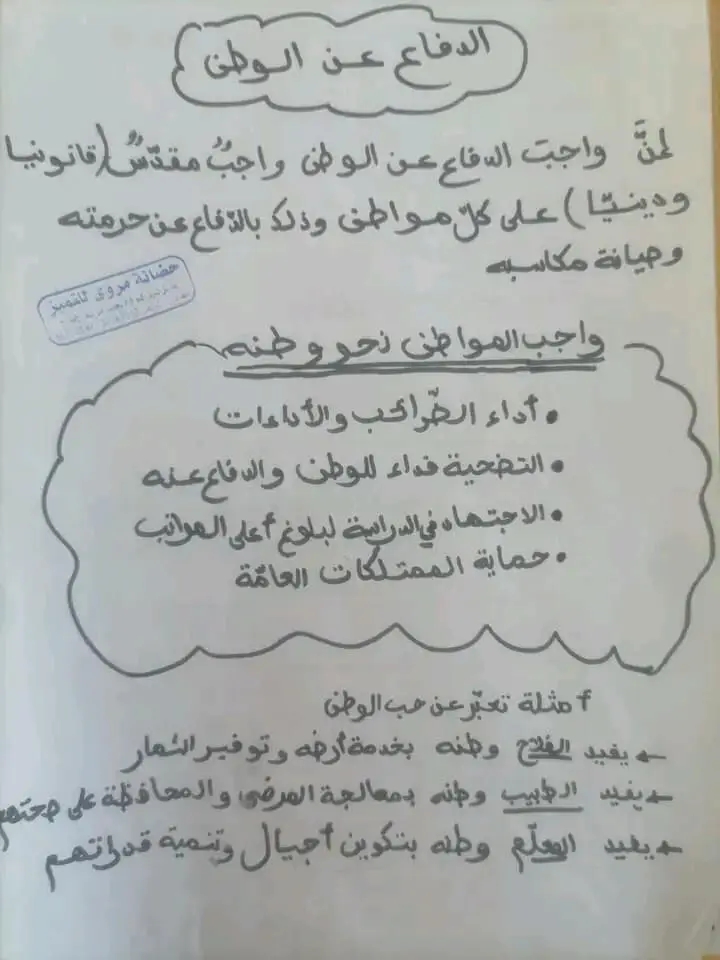 الدفاع عن الوطن
إنَّ واجب الدفاع عن الوطن واجبٌ مقدّسٌ (قانونيا
ودينيّا) على كلّ مواطن وذلك بالدّفاع عن حرمته
وصيانة مكاسبه
حضانة مروى للتميز
واجب المواطن نحو وطنه
• أداء الضّرائب والأداءات
• التضحية فداء للوطن والدفاع عنه
• الاجتهاد في الدراسة لبلوغ أعلى المراتب
• حماية الممتلكات العامّة
أمثلة تعبّر عن حب الوطن
← يفيد الفلاح وطنه بخدمة أرضه وتوفير الثمار
← يفيد الطبيب وطنه بمعالجة المرضى والمحافظة على صحتهم
← يفيد المعلّم وطنه بتكوين أجيال وتنمية قدراتهم